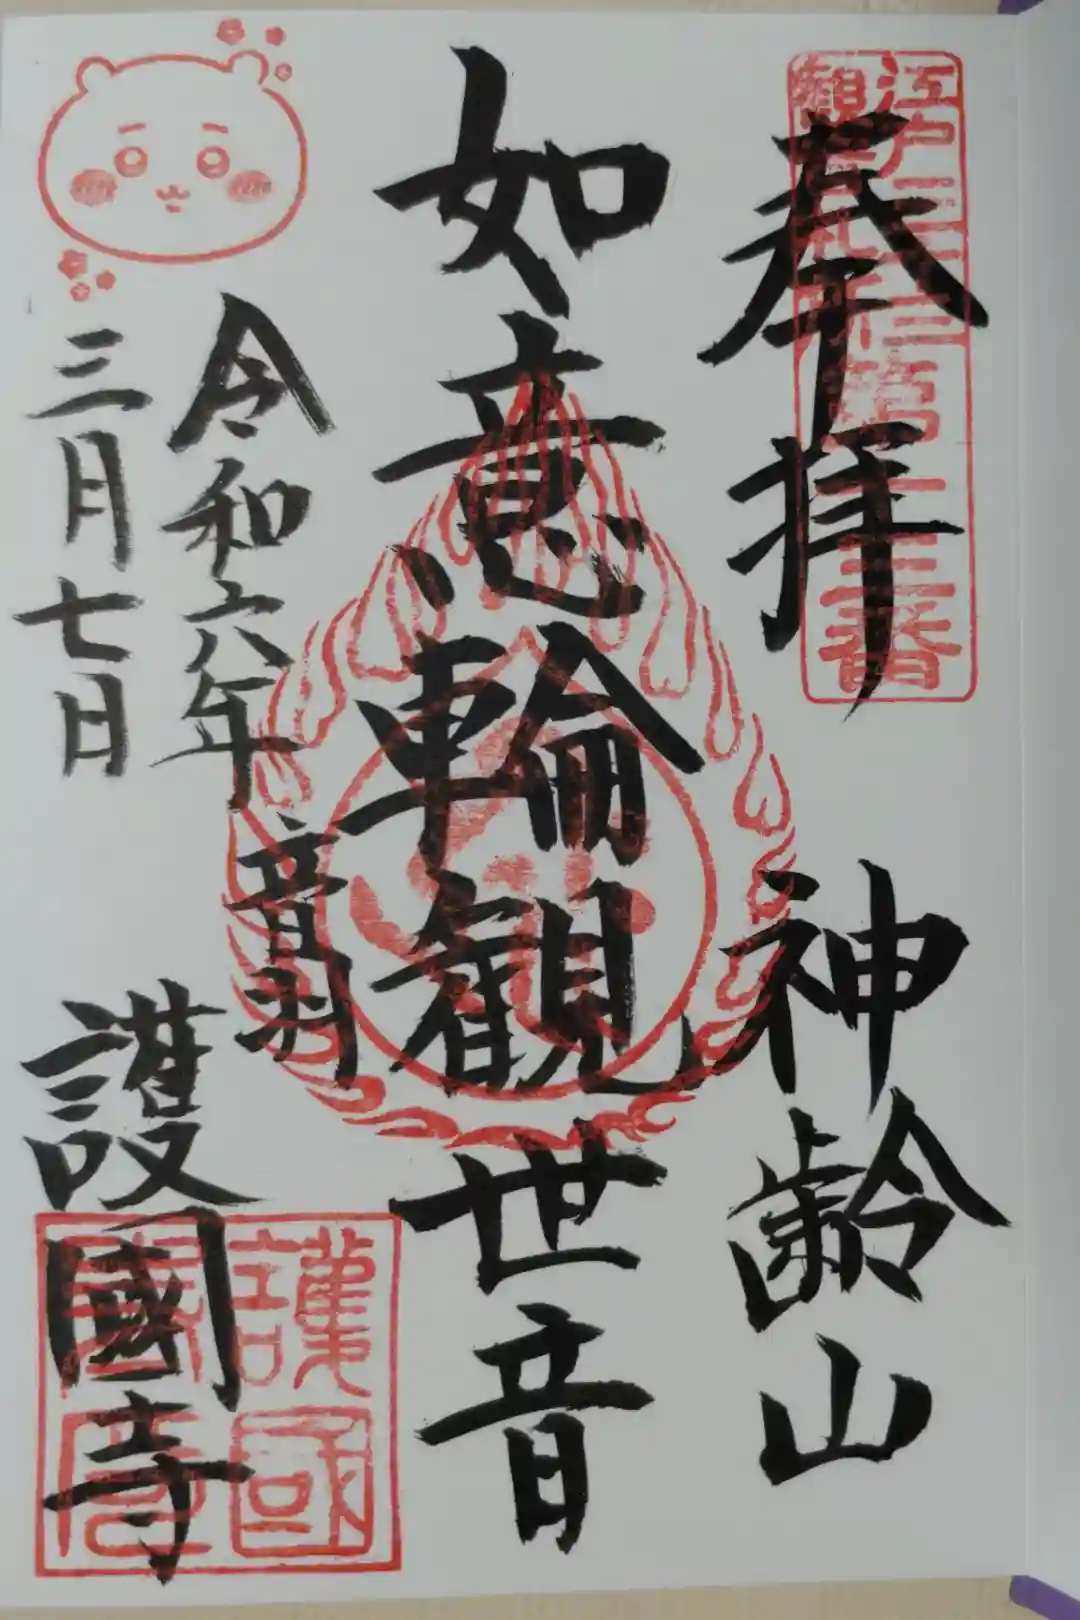 奉拝
神齢山
江戸三十三
観音札所第十三番
如意輪観世音
音羽
令和六年
三月七日
護國寺
護國